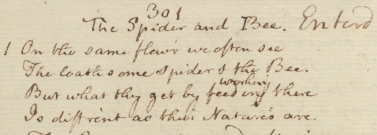 301
The Spider and Bee. Enterd
1 On the same flow'r we often see
The loathsome Spider & the Bee.
But what they get by feeding working there
Is diff'rent as their Nature's are.